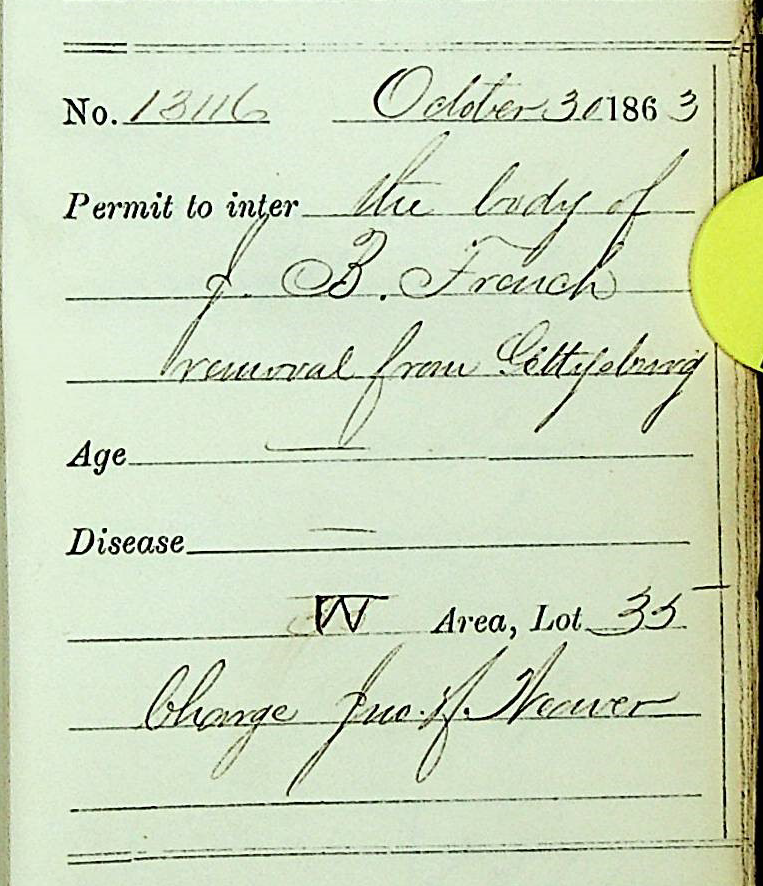 No. 13116 October 30 1863
Permit to inter the body of
J. B. French
removal from Gettysburg
Age —
Disease —
W Area, Lot 35
Charge Jno. H. Weaver